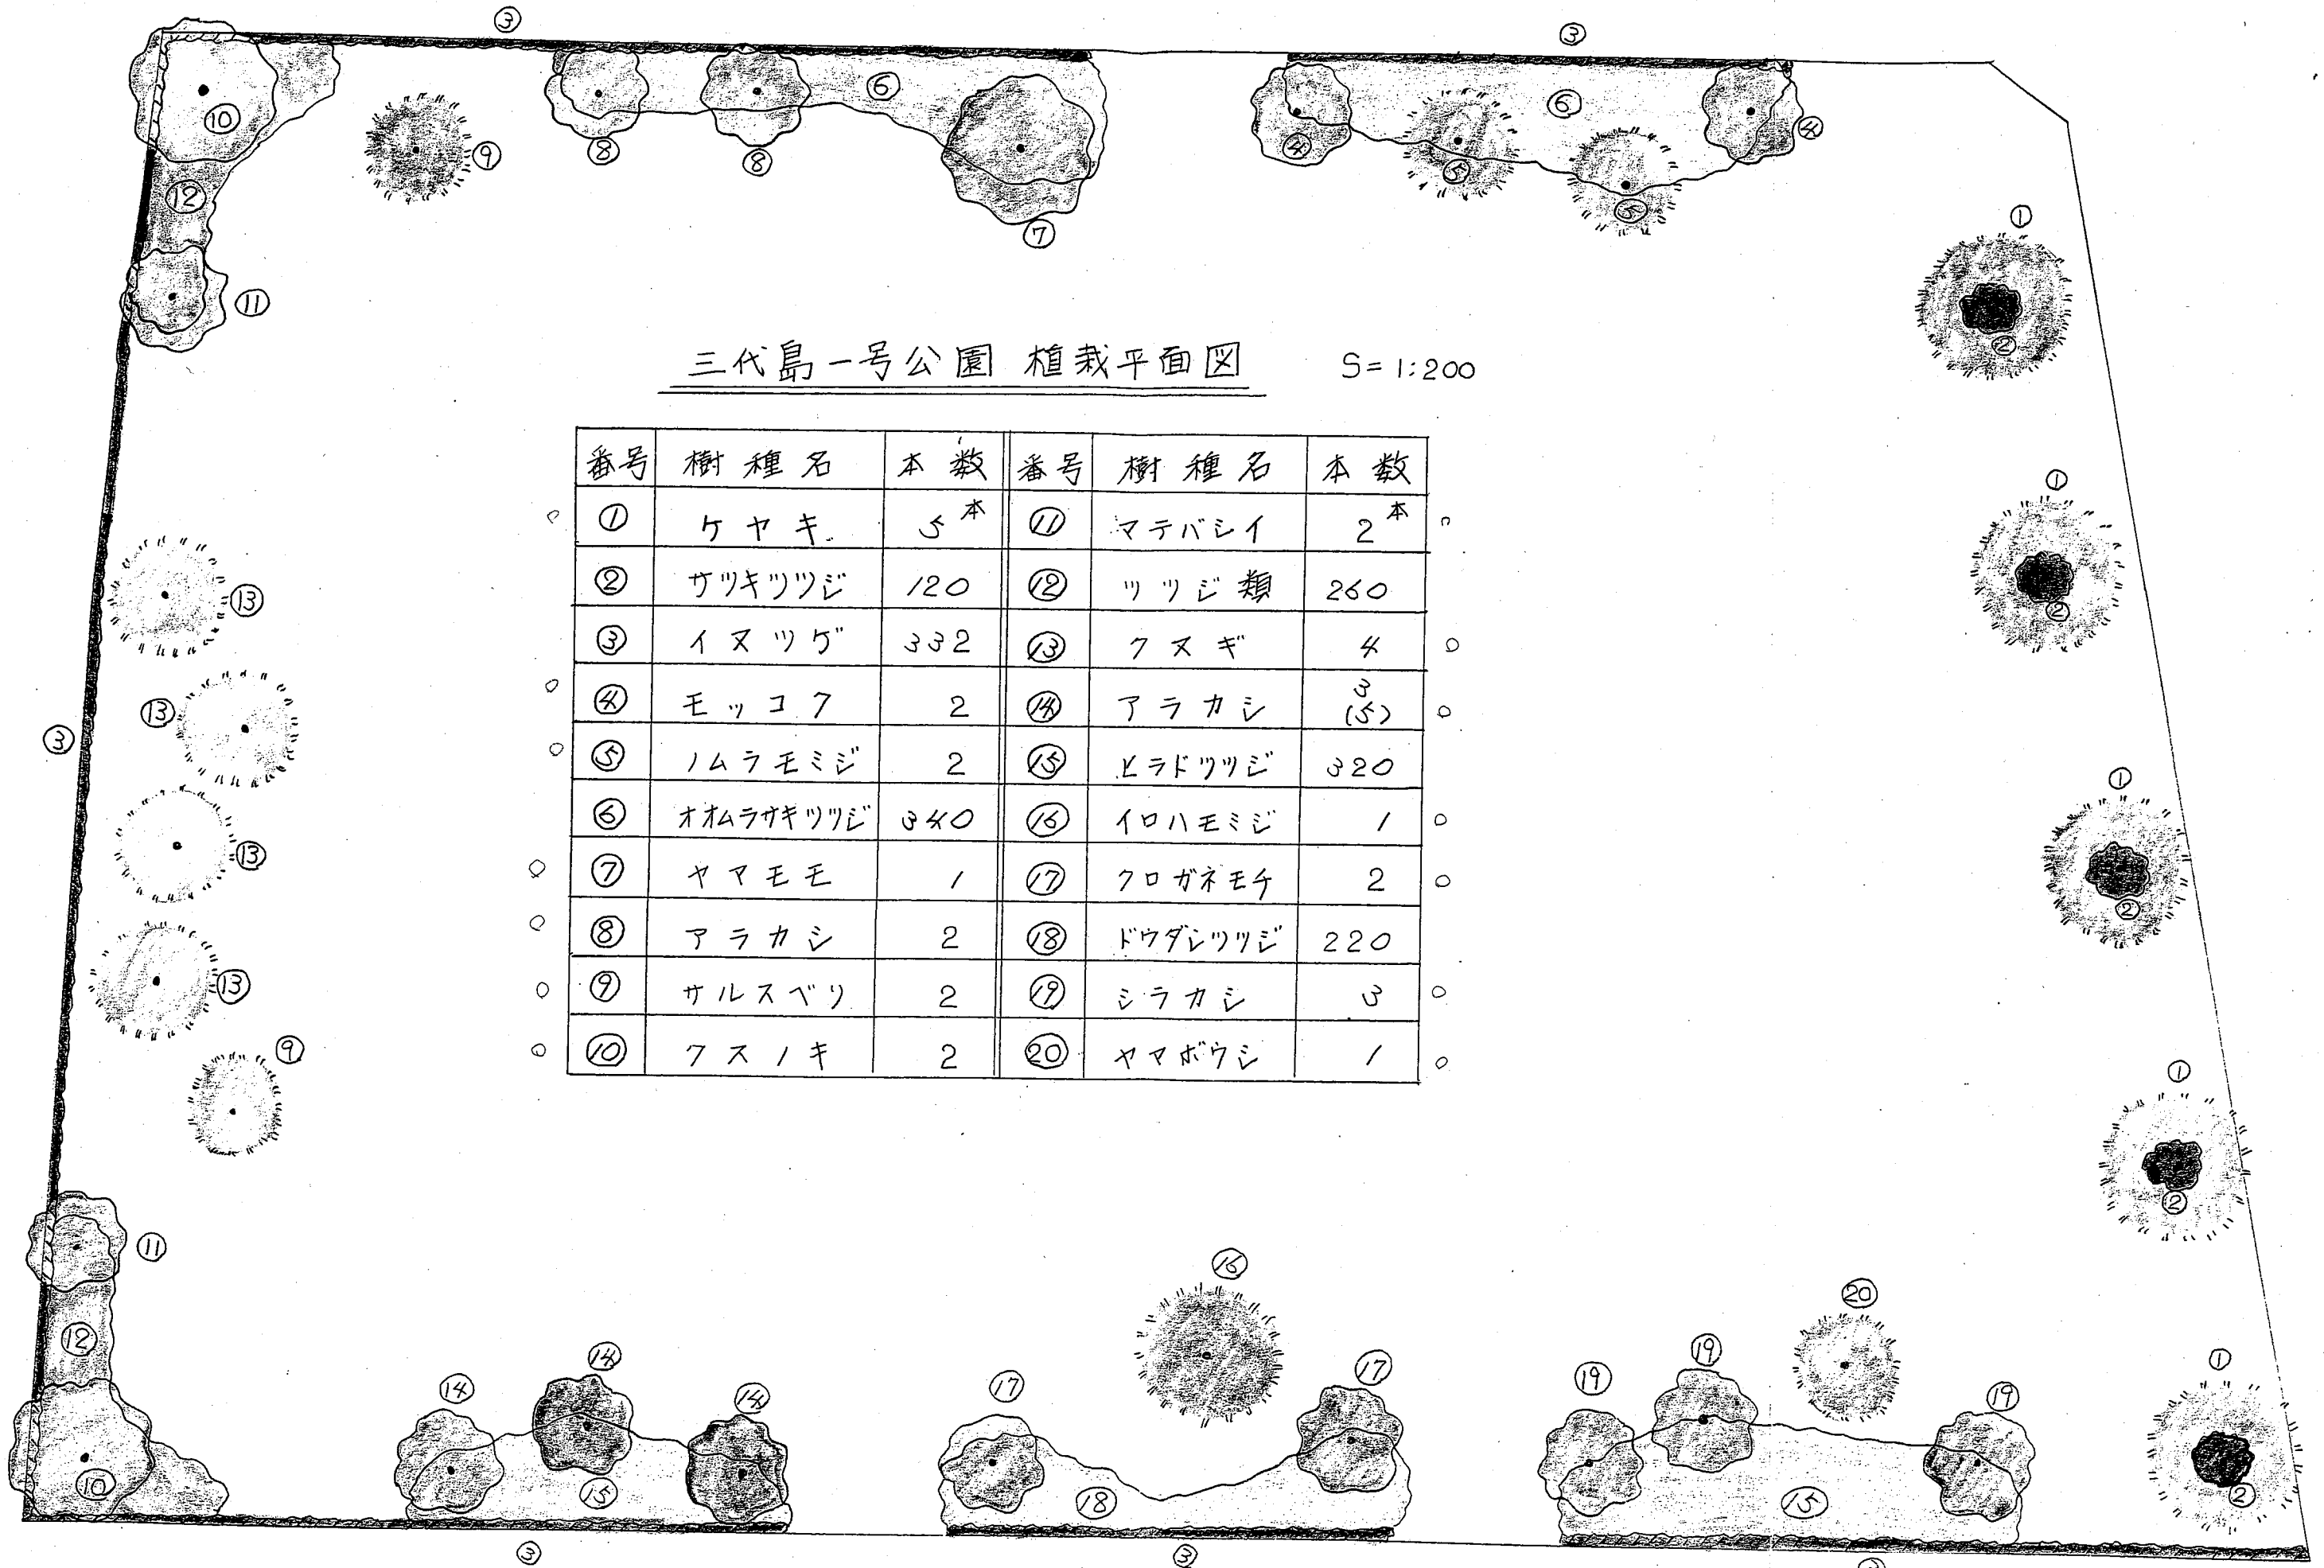 ③
③
⑩
⑨
⑧
⑧
⑥
⑦
④
⑤
⑥
⑤
④
⑫
⑪
①
②
三代島一号公園 植栽平面図 S=1:200
番号 樹種名 本数 番号 樹種名 本数
① ケヤキ 5本 ⑪ マテバシイ 2本
② サツキツツジ 120 ⑫ ツツジ類 260
③ イヌツゲ 332 ⑬ クヌギ 4
④ モッコク 2 ⑭ アラカシ 3 (5)
⑤ ノムラモミジ 2 ⑮ ヒラドツツジ 320
⑥ オオムラサキツツジ 340 ⑯ イロハモミジ 1
⑦ ヤマモモ 1 ⑰ クロガネモチ 2
⑧ アラカシ 2 ⑱ ドウダンツツジ 220
⑨ サルスベリ 2 ⑲ シラカシ 3
⑩ クスノキ 2 ⑳ ヤマボウシ 1
①
②
①
②
①
②
①
②
⑬
⑬
③
⑬
⑬
⑨
⑪
⑫
⑩
⑭
⑭
⑭
⑮
⑯
⑰
⑰
⑱
⑳
⑲
⑲
⑲
⑮
③
③
③